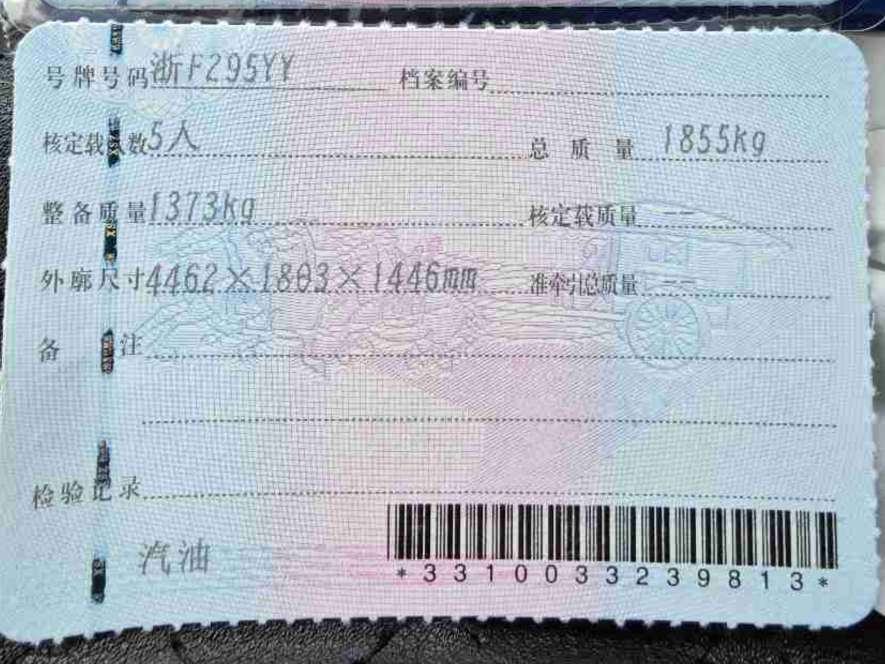 号牌号码 浙F295YY 档案编号
核定载人数 5人 总质量 1855kg
整备质量 1373kg 核定载质量 --
外廓尺寸 4462×1803×1446mm 准牵引总质量 --
备注
检验记录
汽油
*3310033239813*